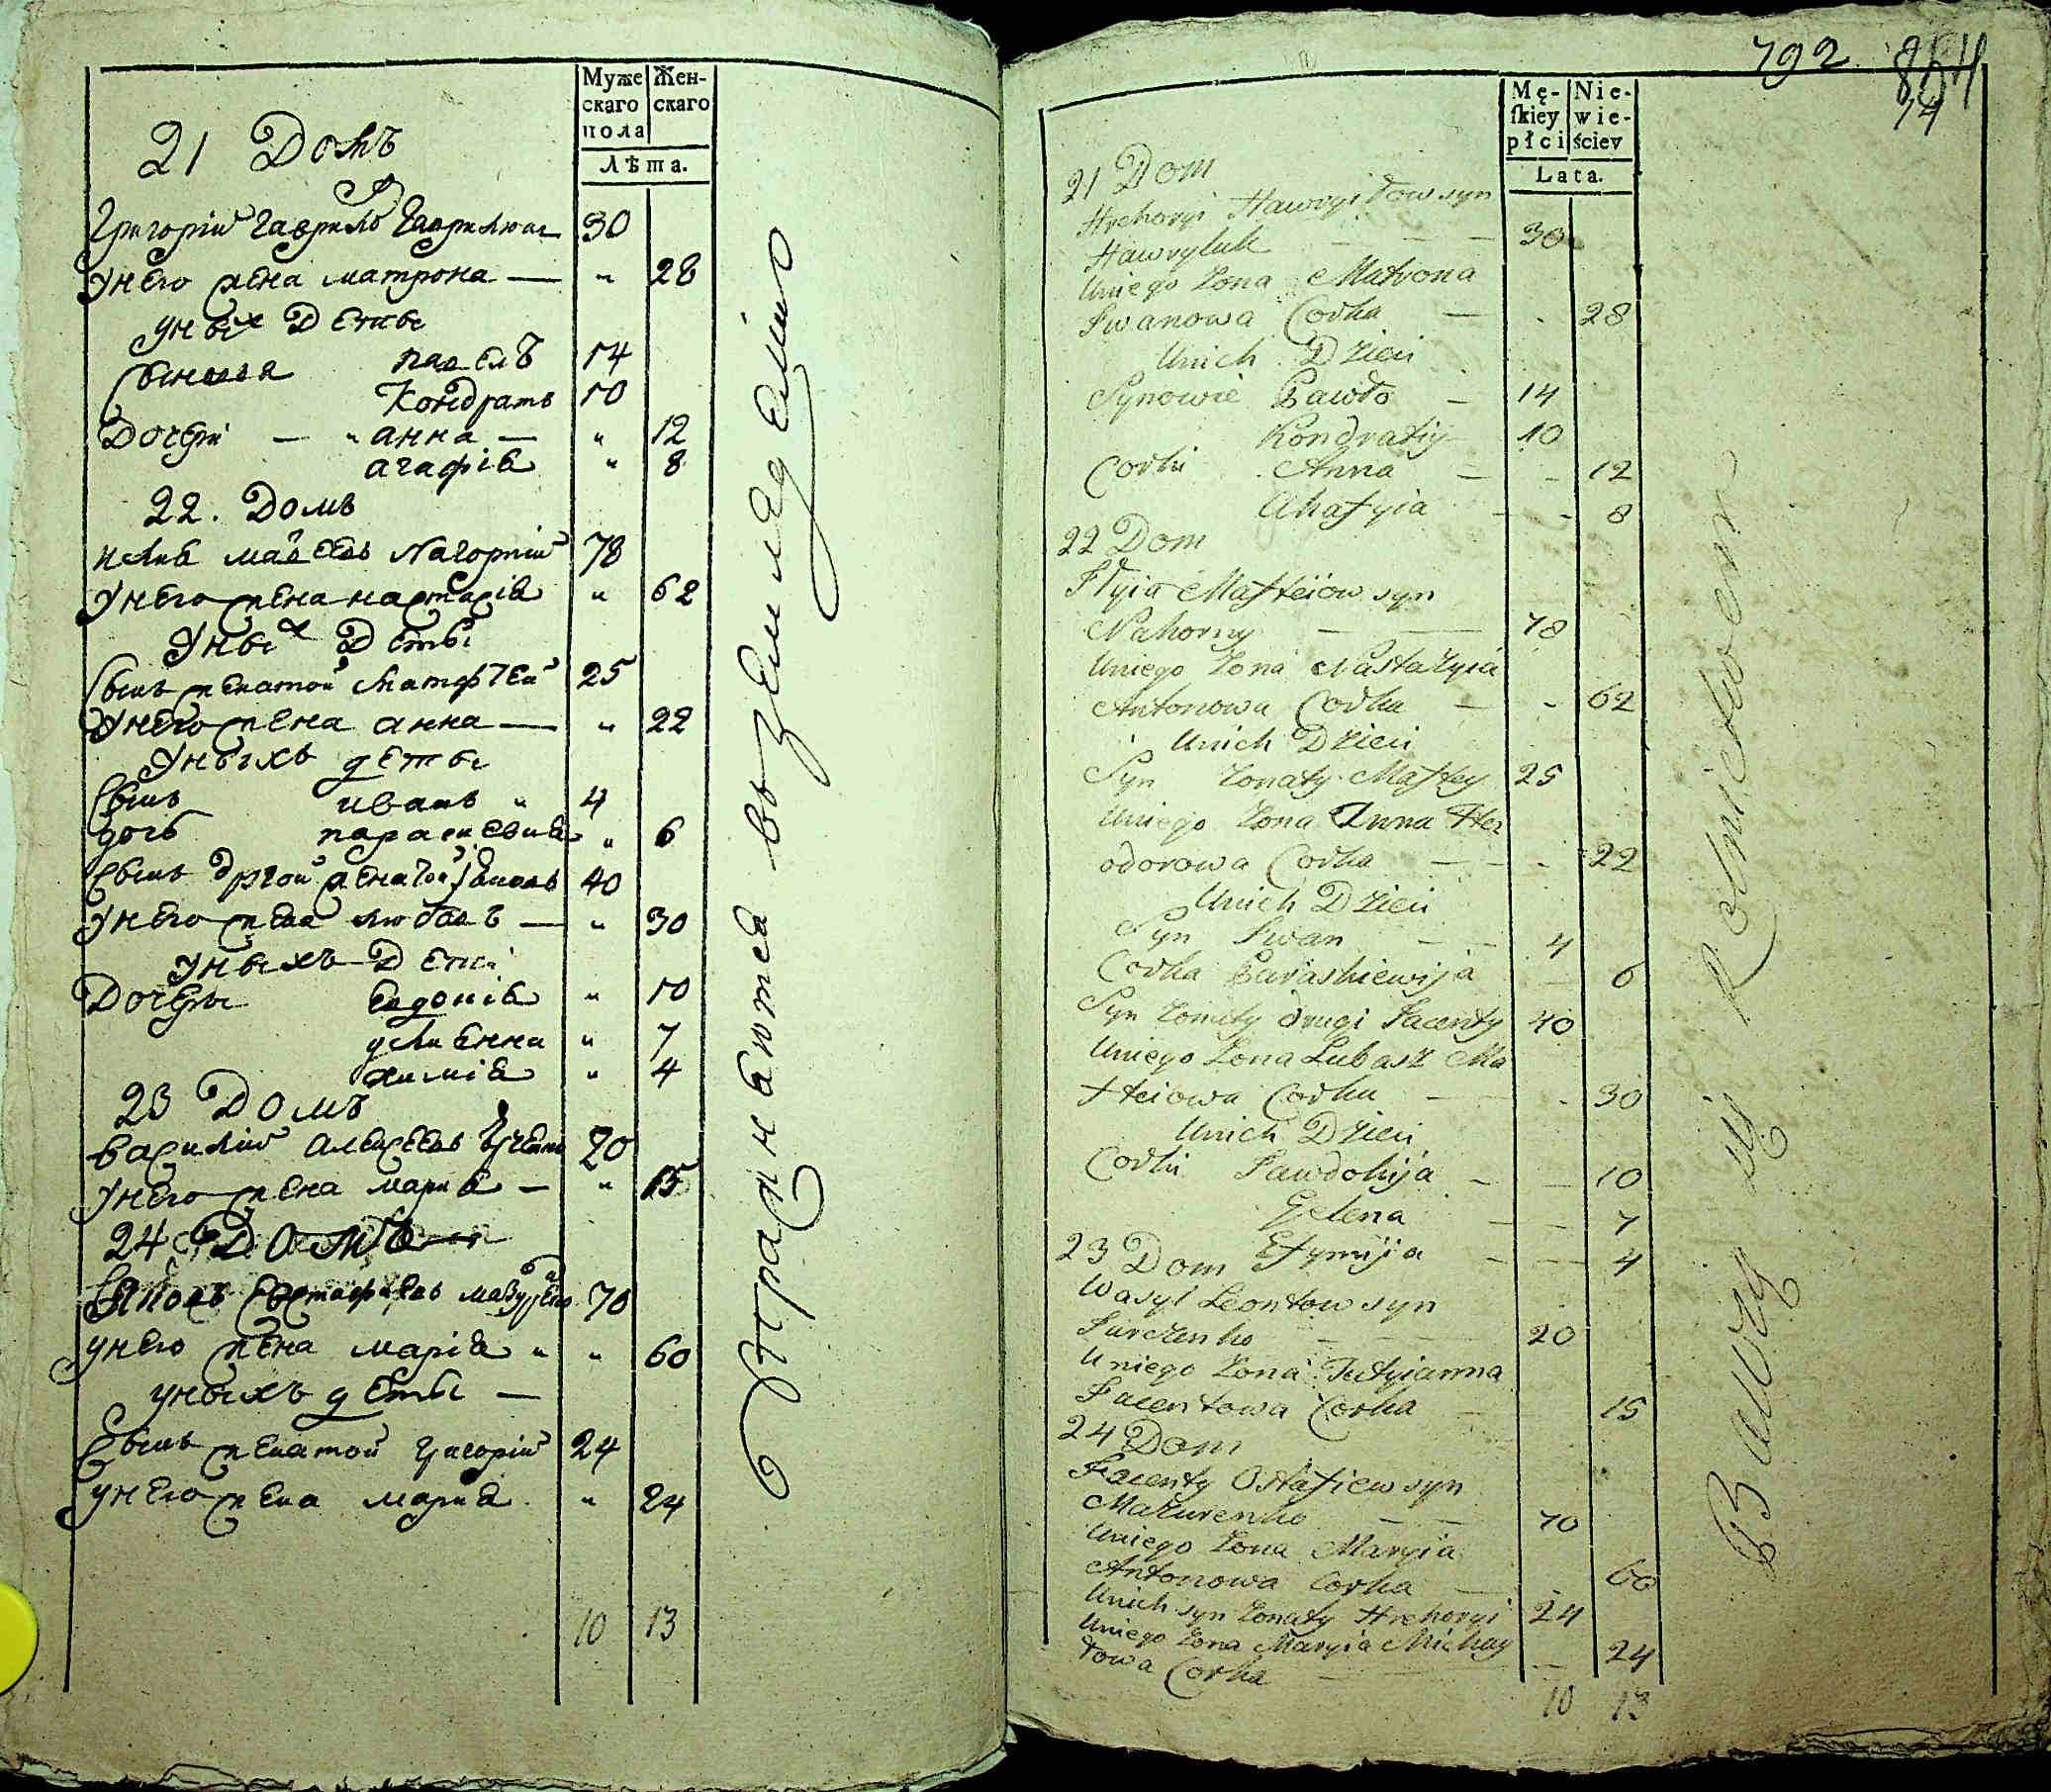 Муже
скаго
пола
Жен-
скаго
Лѣта.
21 Домъ
Григорій Гаврилъ Гаврилюкъ 30
Унего жена матрона — " 28
уныхъ Дети
Сыновя павелъ 14
Кондратъ 10
Дочери — " анна — " 12
агафія " 8
22. Домъ
илия матвеевъ Нагорній 78
Унего жена настасія " 62
Уныхъ Деты
Сынъ женатой Матфей 25
Унего жена анна — " 22
Уныхъ деты
Сынъ иванъ " 4
дочь параскевия " 6
Сынъ другой женатой 40
Унего жена любовъ — " 30
Уныхъ Дети
Дочеры Евдокія " 10
улиянна " 7
химія " 4
23 Домъ
василій 20
Унего жена мария — " 15
24 Домъ
Яковъ Евстафіевъ мазуренко 70
унего жена марія " " 60
уныхъ деты —
Сынъ женатой григорій 24
унего жена мария " 24
10 13
упражняются въ земледеліи
792
854
14
Mę-
ſkiey
płci
Nie-
wie-
ściey
Lata.
21 Dom
Hrehoryi Hawryiłow syn
Hawryluk — — — 30
Uniego Żona Matrona
Iwanowa Corka — - 28
Unich Dzieci
Synowie Pawło — 14
Kondratiy 10
Corki Anna — - 12
Ahafyia — - 8
22 Dom
Ilyia Mafteiow syn
Nahorny — — 78
Uniego Żona Nastazyia
Antonowa Corka — - 62
Unich Dzieci
Syn Żonaty Maftey 25
Uniego Żona Anna Fte
odorowa Corka — - 22
Unich Dzieci
Syn Iwan — — 4
Corka Paraskiewija — 6
Syn Żonaty drugi Jacenty 40
Uniego Żona Lubasz Ma
fteiowa Corka — - 30
Unich Dzieci
Corki Jawdokija — — 10
Jelena — — 7
Efymija — — 4
23 Dom
Wasyl Leontow syn
Jurczenko — 20
Uniego Żona Tatyianna
Jacentowa Corka — 15
24 Dom
Jacenty Ostafiew syn
Mazurenko — — 70
Uniego Żona Maryia
Antonowa Corka — - 60
Unich syn Żonaty Hrehoryi 24
Uniego Żona Maryia Michay
łowa Corka — — 24
10 13
Bawią się Rolnictwem